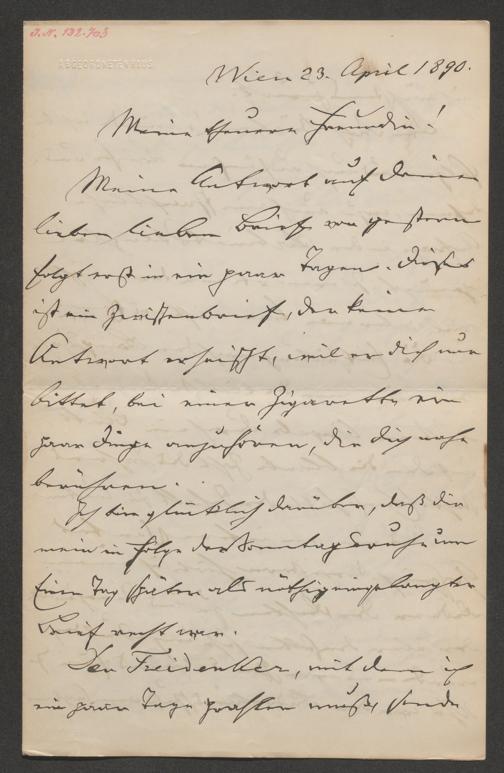 J.N. 132.703
ABGEORDNETENHAUS
Wien 23. April 1890.
Meine theuere Freundin!
Meine Antwort auf Deinen
lieben lieben Brief von gestern
folgt erst in ein paar Tagen. Dieses
ist ein Zwischenbrief, der keine
Antwort erheischt, weil er Dich nur
bittet, bei einer Zigarette ein
paar Dinge anzuhören, die Dich nahe
berühren.
Ich bin glücklich darüber, daß Dir
mein in Folge der Sonntagsruhe um
Einen Tag später als nöthig eingelangter
Brief recht war.
Den Freidenker, mit dem ich
ein paar Tage prahlen mußte, sende